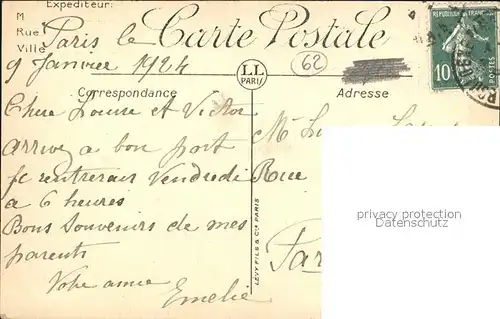 Expéditeur:
M
Rue
Ville
Carte Postale
Paris le
9 Janvier 1924
62
LL
PARIS
REPUBLIQUE FRANCAISE
10
POSTES
Correspondance
Adresse
Chère Louise et Victor
arrivé a bon port
je rentrerais Vendredi
a 6 heures
Bons Souvenirs de mes
parents
Votre amie
Emelie
LEVY FILS & Cie PARIS
Rue
privacy protection
Datenschutz